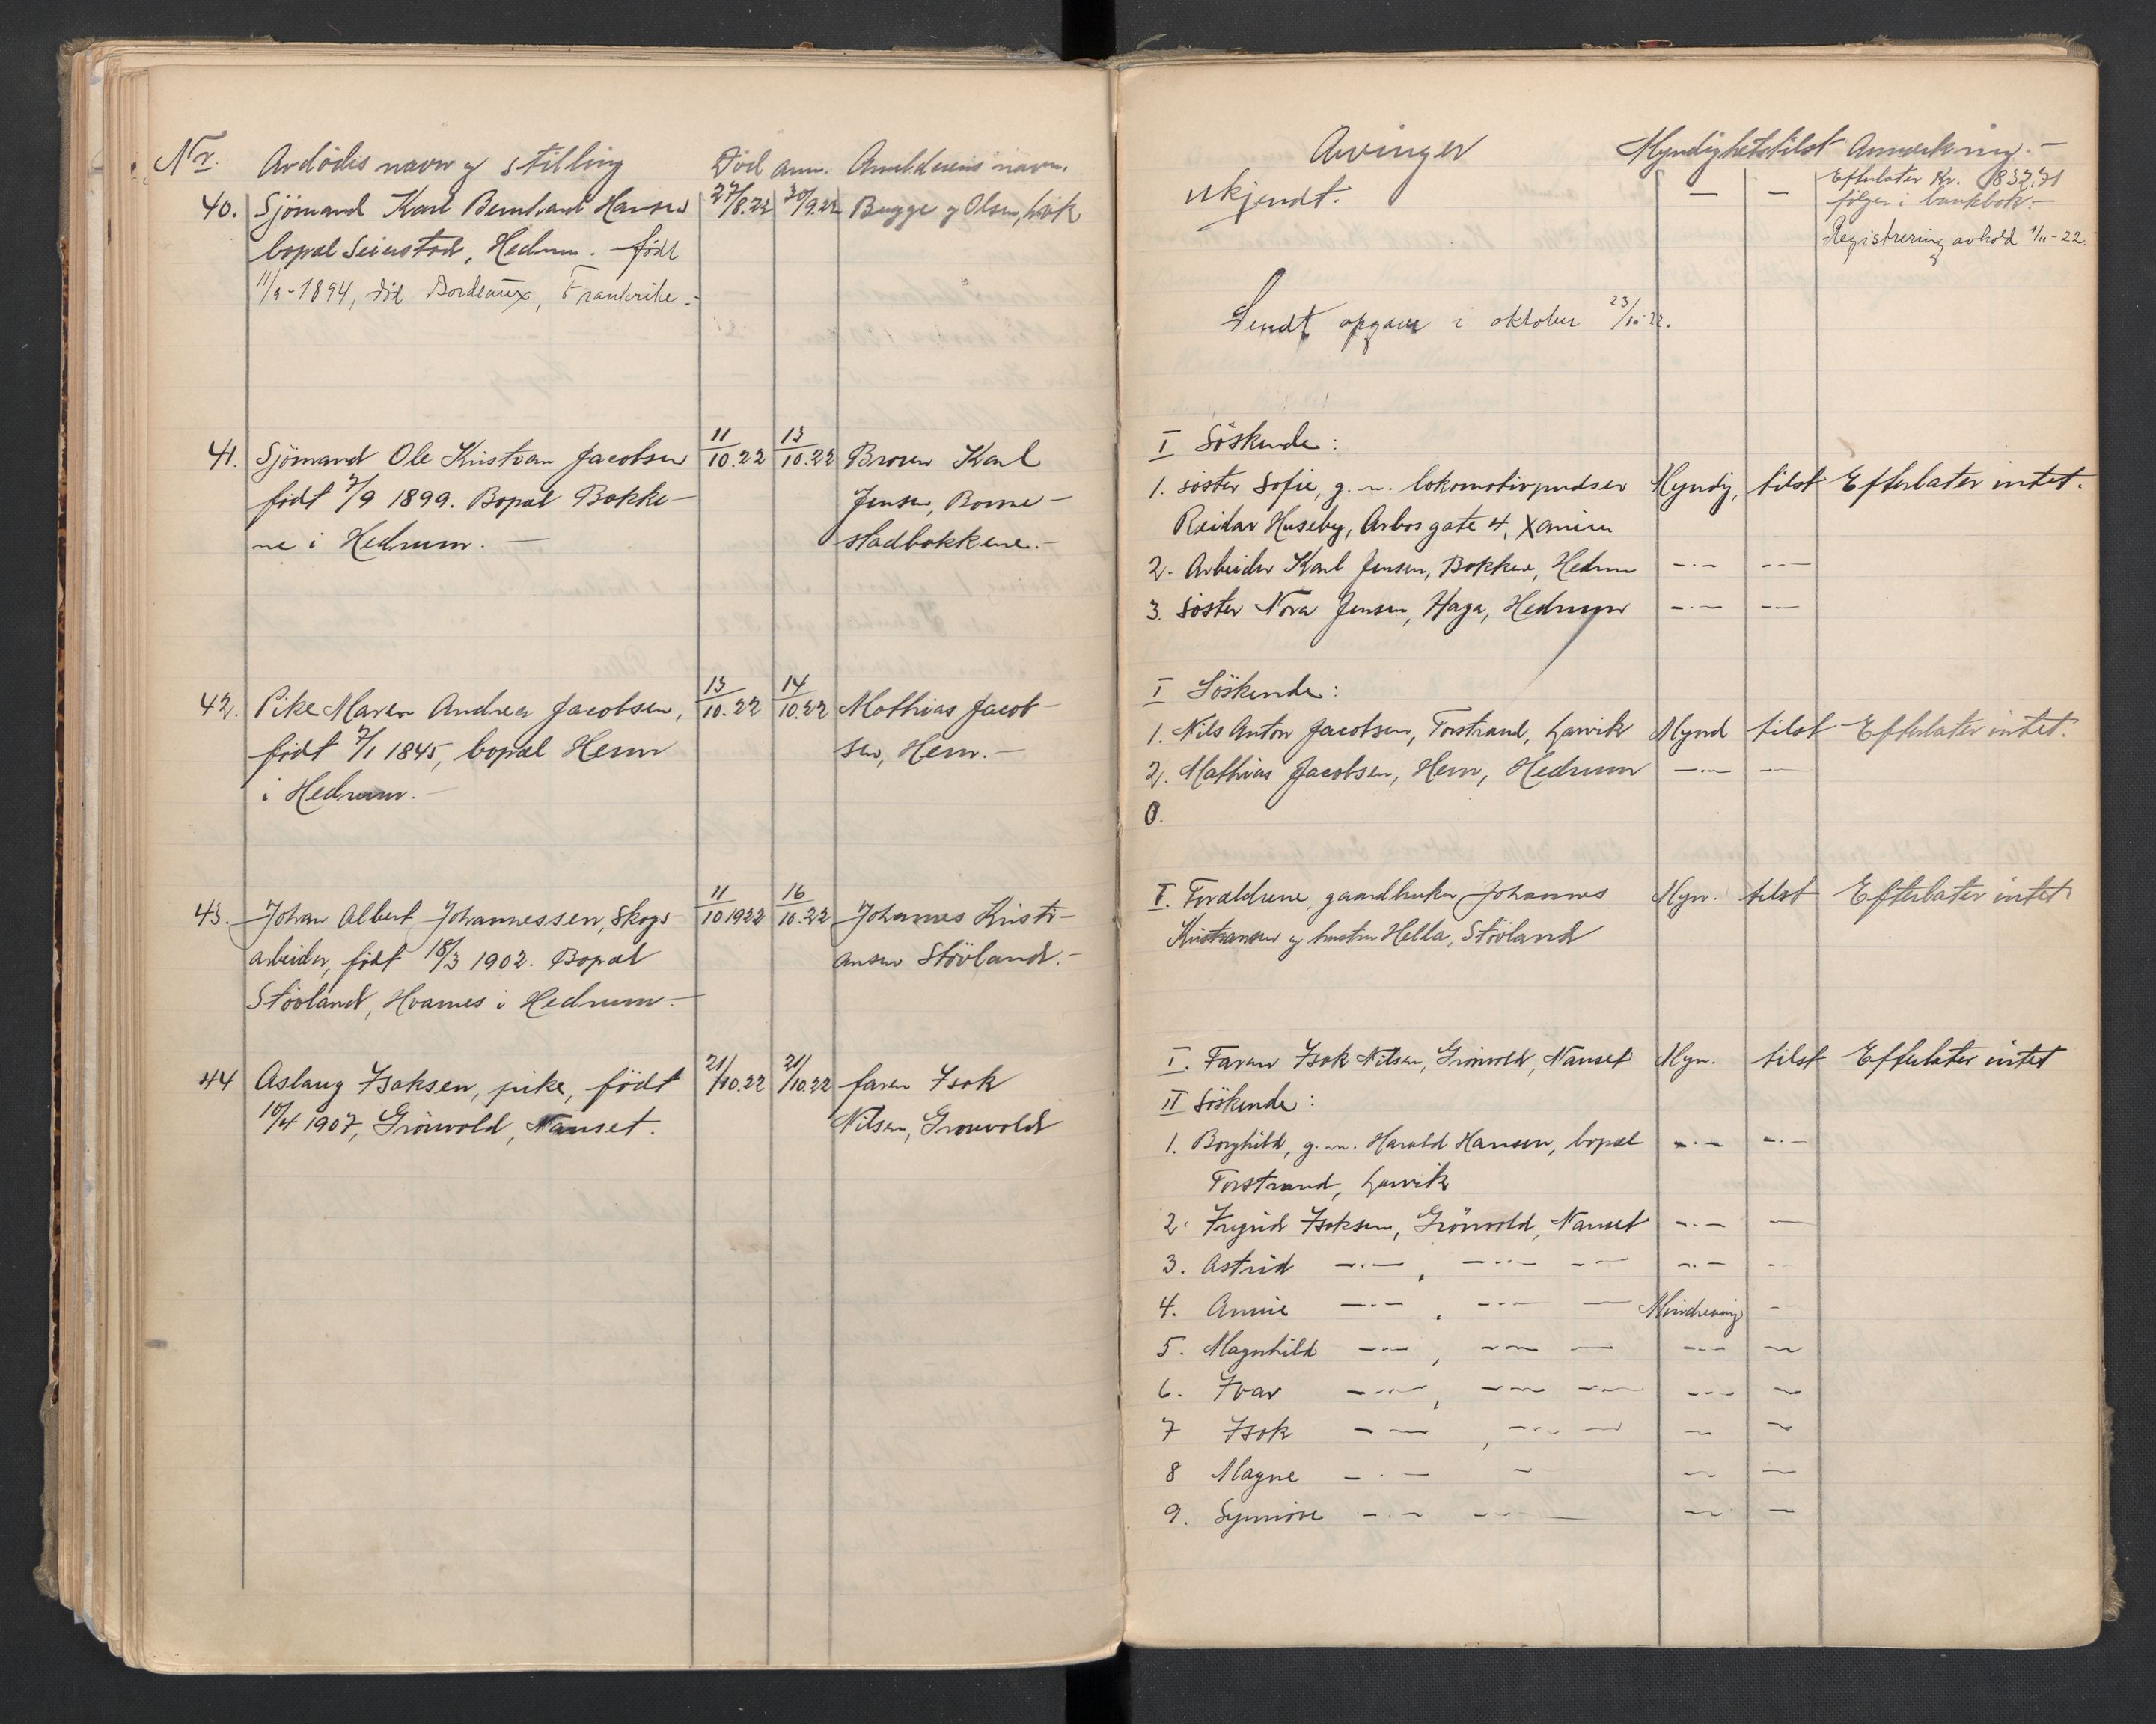 Nr. Avdödes navn og stilling Död anm. Anmelderens navn.
40. Sjömand Karl Bernhard Hansen 27/8.22 30/9.22 Bugge og Olsen, Lrvik
bopal Seierstad, Hedrum. född
11/9-1894, död Bordeaux, Frankrike.-
41. Sjömand Ole Kristian Jacobsen 11/10.22 13/10.22 Broren Karl
født 7/9 1899. Bopæl Bokke- Jensen, Bomme-
ne i Hedrum.- stadbokkene.-
42. Pike Maren Andrea Jacobsen, 13/10.22 14/10.22 Mathias Jacob-
født 7/1 1845, bopæl Hem sen, Hem.-
i Hedrum.-
43. Johan Albert Johannessen, Skogs 11/10 1922 16/10.22 Johannes Kristi-
arbeider, født 18/3 1902. Bopæl ansen Stövland.-
Stövland, Hvarnes i Hedrum.-
44 Aslaug Isaksen, pike, født 21/10.22 21/10.22 faren Isak
10/4 1907, Grönvold, Nanset. Nilsen, Gronvold
Arvinger Myndighetstilst Anmerkning.-
ukjendt. — — Efterlater Kr. 1832,71
følger i bankbok.-
Registrering avhold 1/11-22.
Sendt opgave i oktober 23/10-22.
I Söskende:
1. söster Sofie, g. m. lokomotivpudser Myndig, tilst Efterlater intet.
Reidar Huseby, Arbos gate 4, Xania
2. Arbeider Karl Jensen, Bokkene, Hedrum -"- -"-
3. Söster Nora Jensen, Haga, Hedrum -"- -"-
I Söskende:
1. Nils Anton Jacobsen, Torstrand, Larvik Mynd tilst Efterlater intet.
2. Mathias Jacobsen, Hem, Hedrum -"- —
0.
I. Forældrene, gaardbruker Johannes Myn. tilst Efterlater intet
Kristiansen og hustru Hella, Stövland
I. Faren Isak Nilsen, Grönvold, Nanset Myn. tilst Efterlater intet
II Söskende:
1. Borghild, g. m. Harald Hansen, bopæl -"- -"-
Torstrand, Larvik
2. Ingrid Isaksen, Grönvold, Nanset -"- —
3. Astrid -"-, -"- -"- -"- -"-
4. Annie -"-, -"- — Mindreårig -
5. Magnhild -"-, -"- — -"- —
6. Ivar -"-, -"- -"- -"- —
7 Isak -"-, -"- — — —
8 Magne -"- — — —
9. Synnöve -"- -"- — — —